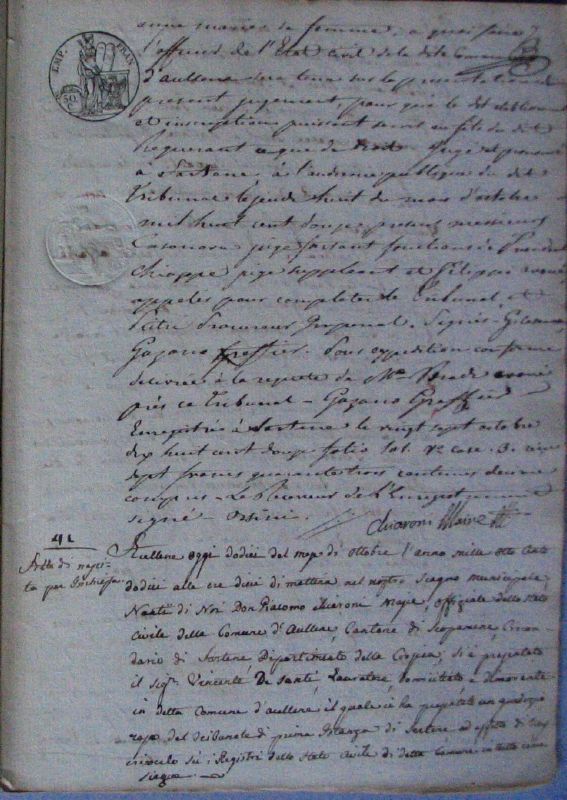 EMP. FRAN
50
a quoi faire
l'officier de l'Etat Civil de la dite Commune
d'aullene sera tenu sur la presentation du
present jugement, pour que le dit etablissement
et inscriptions puissent servir au fils du dit
Requerant ce que de Droit. Jugé et prononcé
à Sartene à l'audience publique du dit
Tribunal le jeudi huit du mois d'octobre
mil huit cent douze, presens messieurs
Casanova juge faisant fonctions de President
Chiappe juge suppleant et Filippi avoué
appelés pour completer le Tribunal, et
Pietri Procureur Imperial. Signés
Gazano Greffier. Pour expedition conforme
delivrée à la requete de Mr avoué
près ce Tribunal - Gazano Greffier
Enregistrée à Sartene le vingt sept octobre
dix huit cent douze folio 101. Vo case 3. reçu
sept francs quarante trois centimes decime
compris - Le Receveur de l'Enregistrement
signé - Orsini.
Chiaroni Maire
41
Atto di nascita
per
Aullene oggi dodici del mese di ottobre l'anno mille otto cento
dodici alle ore dieci di mattina nel nostro Segno municipale
Nanti di Noi Don Giacomo Chiaroni Maire, offiziale dello stato
civile della Comune d'Aullene, Cantone di Scopamene, Circon-
dario di Sartene, Dipartimento della Corsica, si è presentato
il sigr. Vincente De Santi, Lavoratore, domiciliato e dimorante
in detta Comune d'aullene il quale ci ha presentato un
del tribunale di prima istanza di Sartene ad effetto di
su i Registri dello Stato Civile di detta Comune in tutto come
siegue